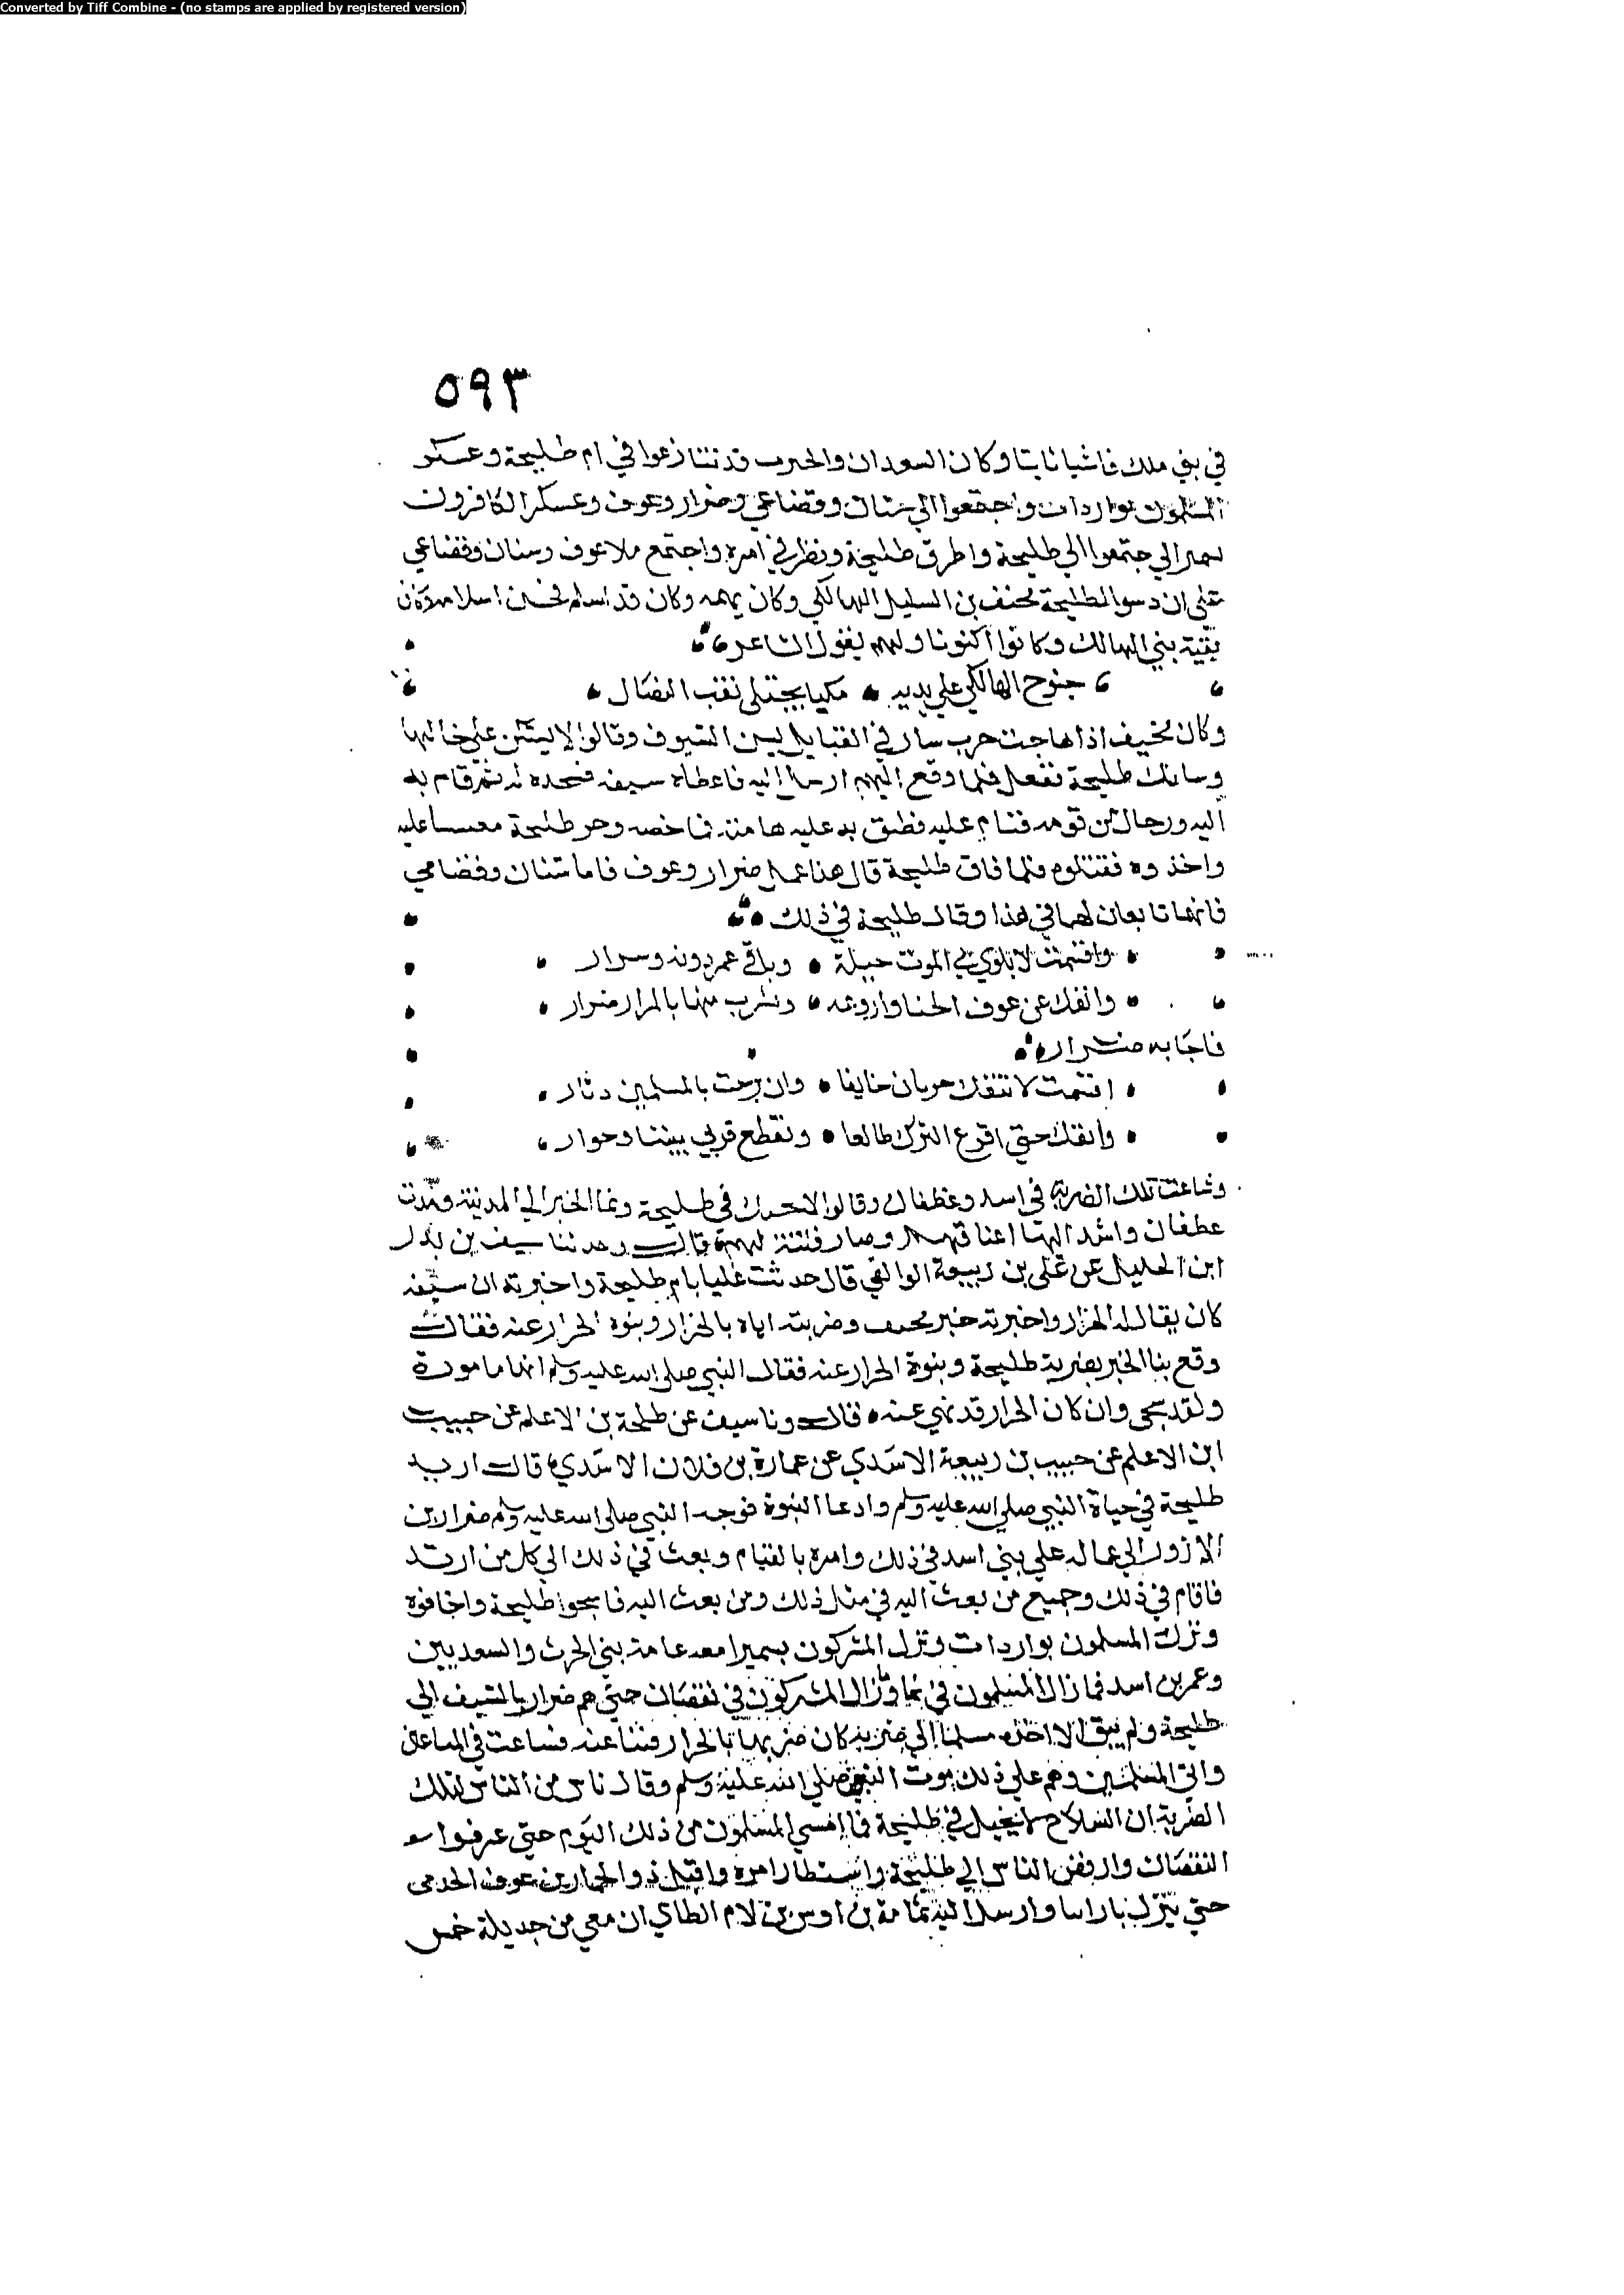 Converted by Tiff Combine - (no stamps are applied by registered version)
٥٩٣
في بني ملك فاشيا نابتا وكان السعودان والحرب قد تنازعوا في ام طليحة وعسكر
المسلمون بواردات واجتمعوا الي سنان وقضاعي وضرار وعوف وعسكر الكافرون
سميرا لي جتمعوا الي طليحة واطرق طليحة ونظر في امره واجتمع ملا عوف وسنان وقضاعي
علي ان دسوا لطليحة مخنف بن السليل الهالكي وكان بهمه وكان قد اسلم فحسن اسلامه وكان
بقية بني الهالك وكانوا ولهم يقول الشاعر
جنوح الهالكي علي يديه مكبا يجتلي نقب النصال
وكان مخيف اذا هاجت حرب سار في القبايل يسن السيوف وقالوا
وسانك طليحة تفعل فلما وقع اليهم ارسل اليه فاعطاه سيفه فشحده له ثم قام به
اليه ورجال من قومه فنام عليه فطبق به عليه هامته فاخصه وحر طليحة مغسا عليه
واخذوه فقتلوه فلما فاق طليحة قال هذا عمل ضرار وعوف فاما سنان وقضاعي
فانهما تابعان لهما في هذا وقال طليحة في ذلك
واقسمت لا يلوي بي الموت حيلة وباقي عمر دونه وسرار
وانفك عن عوف الخنا واروعه ونشرب منها بالمرار ضرار
فاجابه ضرار
اقسمت لا تنفك حربان خايفا وان برحت بالمسلمين دثار
وانفك حتي اقرع الترك طالعا وتقطع قربي بيننا وحوار
وشاعت تلك الضربة في اسد وغطفان وقالوا لا يحيك في طليحة ونما الخبر الي المدينة ومدت
غطفان واسد اليها اعناقهم وصار فتنة لهم قال وحدثنا سيف بن بدر
ابن الخليل عن علي بن ربيعة الوالبي قال حدثت عليا بام طليحة واخبرته ان سيفه
كان يقال له الجراز واخبرته خبر مخنف وضربته اياه بالجراز ونبوة الجراز عنه فقال
وقع بنا الخبر بضربة طليحة ونبوة الجراز عنه فقال النبي صلي الله عليه وسلم انها مامورة
ولقد سجي وان كان الجراز قد نهي عنه قال ونا سيف عن طلحة بن الاعلم عن حبيب
ابن الاعلم عن حبيب بن ربيعة الاسدي عن عمارة بن فلان الاسدي قال ارتد
طليحة في حياة النبي صلي الله عليه وسلم وادعا النبوة فوجد النبي صلي الله عليه وسلم ضرار ابن
الازور الي عماله علي بني اسد في ذلك وامره بالقيام وبعث في ذلك الي كل من ارتد
فاقام في ذلك وجميع من بعث اليه في مثل ذلك ومن بعث اليه فاسجوا طليحة واخافوه
ونزل المسلمون بواردات ونزل المشركون بسميرا معه عامة بني الحرث والسعديين
وعمر بن اسد فما زال المسلمون في نما وزال المشركون في نقصان حتي هم ضرار بالسيف الي
طليحة ولم يبق الا اخذه مسلما الي ضربه كان ضربها بالجراز فنبا عنه فشاعت في
واتي المسلمين وهم علي ذلك بموت النبي صلي الله عليه وسلم وقال ناس من الناس لتلك
الضربة ان السلاح لا يحيك في طليحة فما امسي المسلمون من ذلك اليوم حتي عرفوا
النقصان وارفض الناس الي طليحة واستطار امره واقبل ذو الخمار بن عوف الجدمي
حتي نزل بازانا وارسل اليه ثمامة بن اوس بن لام الطاي ان معي من جديلة خمس